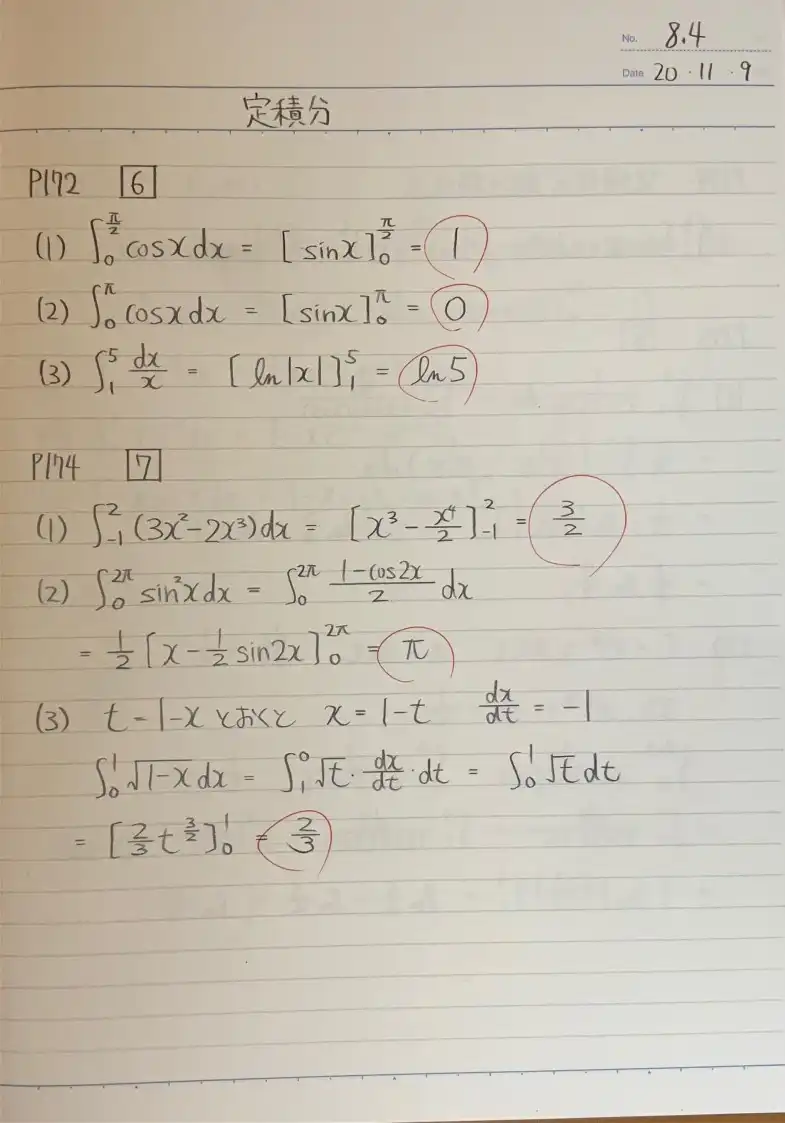 No. 8.4
Date 20・11・9
定積分
P172 [6]
(1) ∫₀^{π/2} cosx dx = [sinx]₀^{π/2} = 1
(2) ∫₀^{π} cosx dx = [sinx]₀^{π} = 0
(3) ∫₁^{5} dx/x = [ln|x|]₁^{5} = ln5
P174 [7]
(1) ∫₋₁^{2} (3x²-2x³)dx = [x³ - x⁴/2]₋₁^{2} = 3/2
(2) ∫₀^{2π} sin²x dx = ∫₀^{2π} (1-cos2x)/2 dx
= 1/2 [x - 1/2 sin2x]₀^{2π} = π
(3) t = 1-x とおくと x = 1-t dx/dt = -1
∫₀^{1} √(1-x) dx = ∫₁^{0} √t · dx/dt · dt = ∫₀^{1} √t dt
= [2/3 t^{3/2}]₀^{1} = 2/3